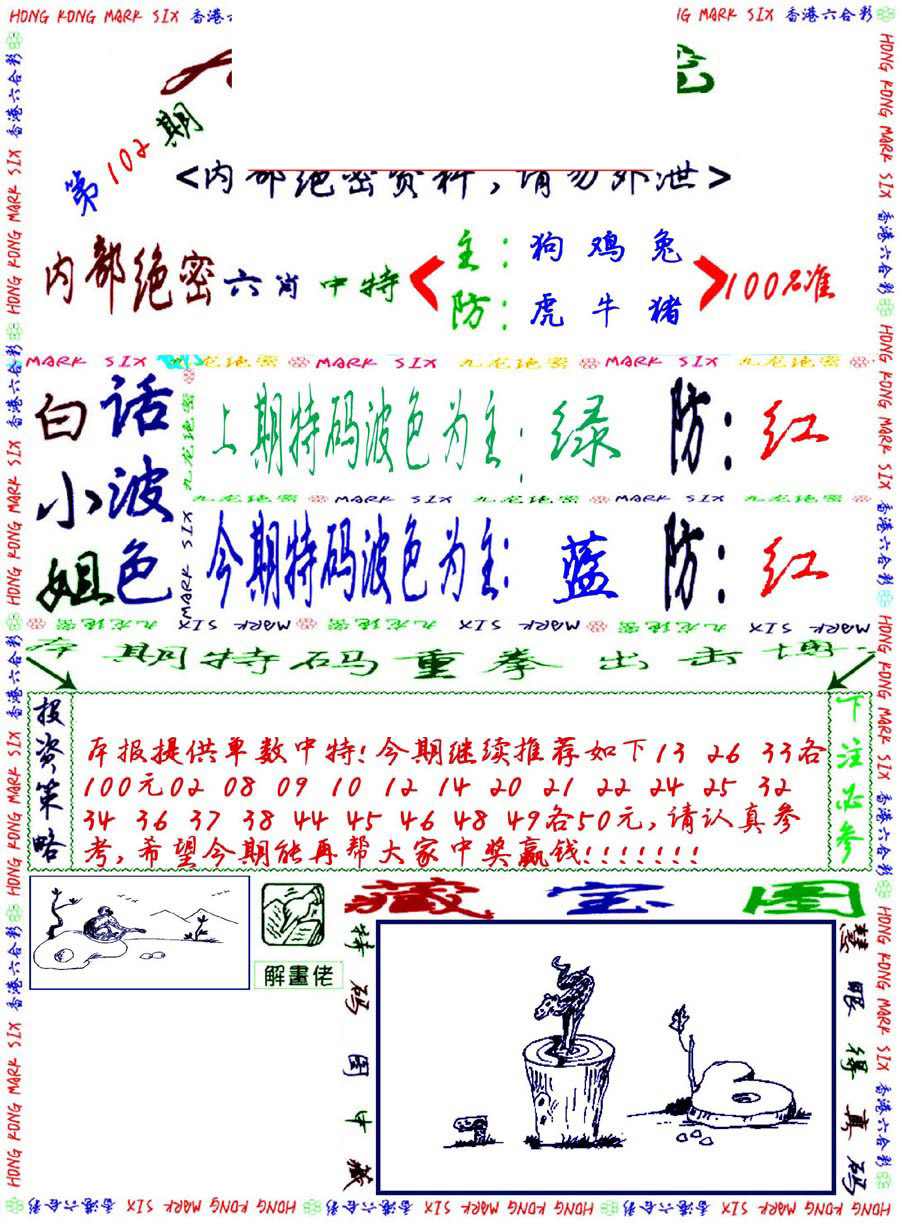 HONG KONG MARK SIX 香港六合彩
第102期
<内部绝密资料，请勿外泄>
内部绝密六肖中特
主：狗 鸡 兔
防：虎 牛 猪
100%准
MARK SIX 九龙绝密 MARK SIX 九龙绝密 MARK SIX 九龙绝密
白小姐
话波色
上期特码波色为主：绿 防：红
九龙绝密 MARK SIX 九龙绝密 MARK SIX 九龙绝密
今期特码波色为主：蓝 防：红
九龙绝密 MARK SIX 九龙绝密 MARK SIX 九龙绝密 MARK SIX
期特码重拳出击
投资策略
本报提供单数中特!今期继续推荐如下13 26 33各
100元02 08 09 10 12 14 20 21 22 24 25 32
34 36 37 38 44 45 46 48 49各50元,请认真参
考,希望今期能再帮大家中奖赢钱!!!!!!!
下注必参
解畫佬
藏宝图
特码图中藏
慧眼得真码
HONG KONG MARK SIX 香港六合彩